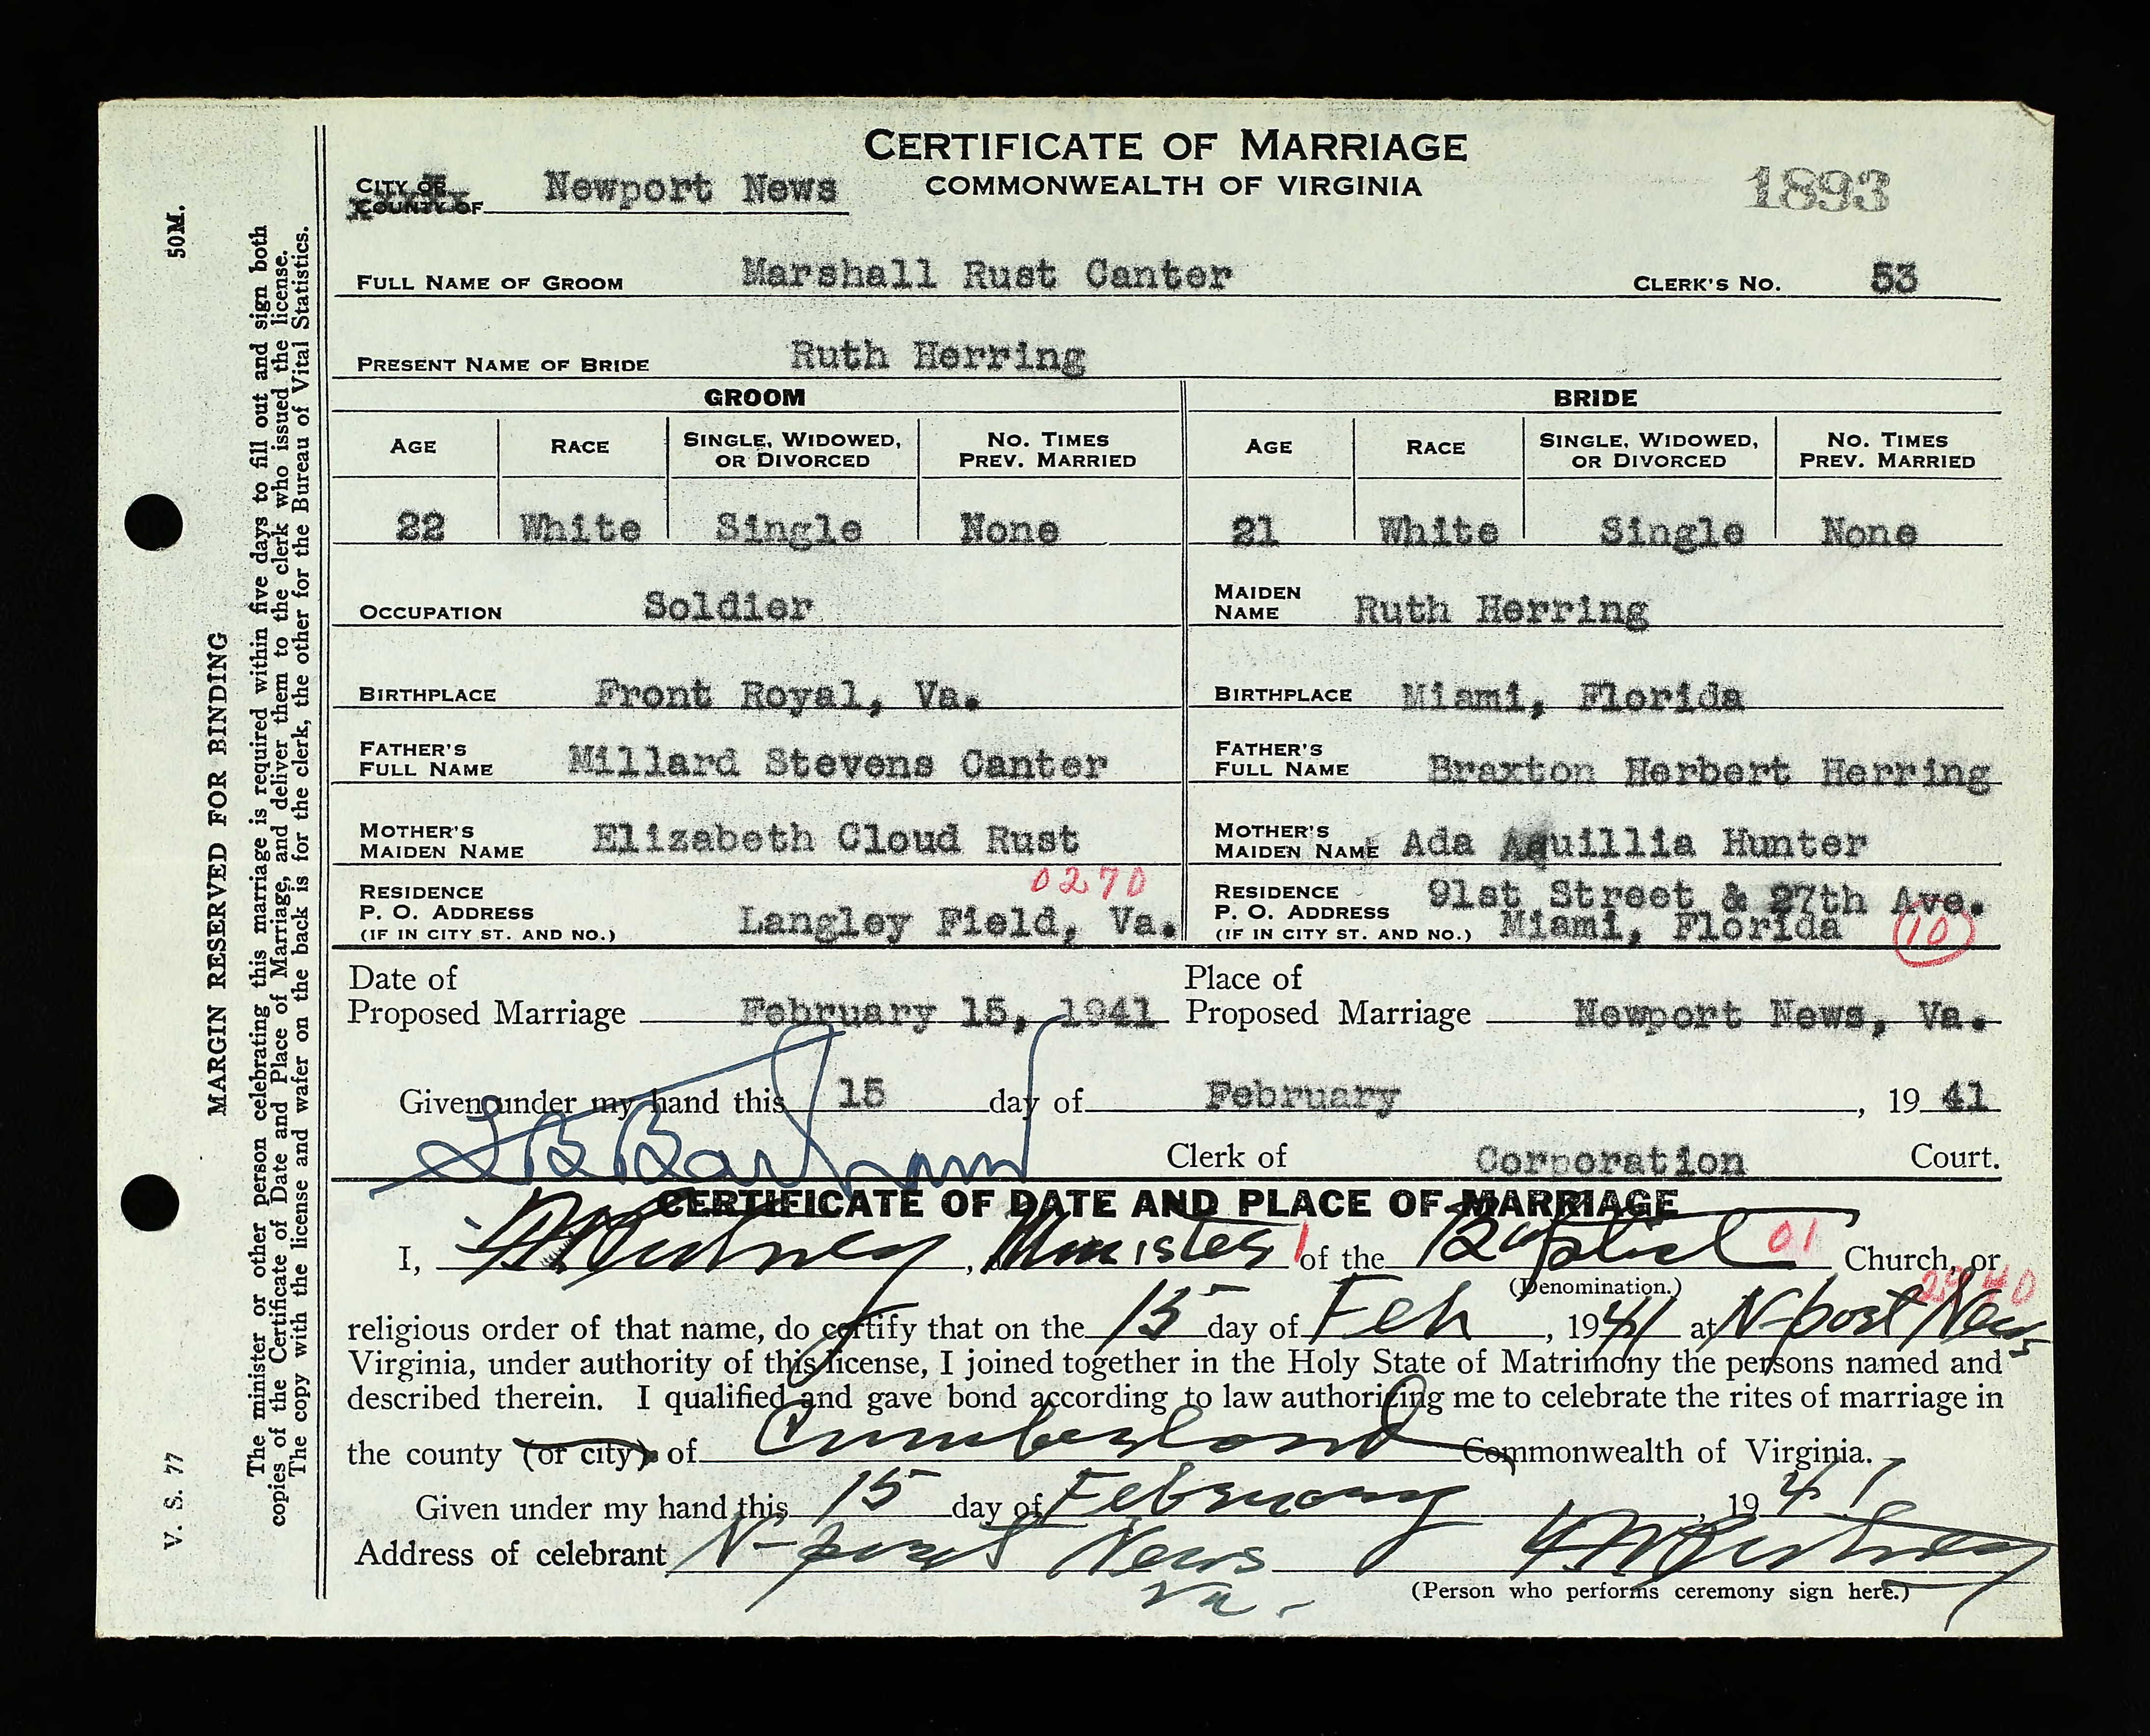 50M.
V. S. 77
MARGIN RESERVED FOR BINDING
The minister or other person celebrating this marriage is required within five days to fill out and sign both
copies of the Certificate of Date and Place of Marriage, and deliver them to the clerk who issued the license.
The copy with the license and wafer on the back is for the clerk, the other for the Bureau of Vital Statistics.
CERTIFICATE OF MARRIAGE
COMMONWEALTH OF VIRGINIA
1893
CITY OR
COUNTY OF Newport News
FULL NAME OF GROOM Marshall Rust Canter CLERK'S NO. 53
PRESENT NAME OF BRIDE Ruth Herring
GROOM BRIDE
AGE RACE SINGLE, WIDOWED, OR DIVORCED NO. TIMES PREV. MARRIED AGE RACE SINGLE, WIDOWED, OR DIVORCED NO. TIMES PREV. MARRIED
22 White Single None 21 White Single None
OCCUPATION Soldier MAIDEN NAME Ruth Herring
BIRTHPLACE Front Royal, Va. BIRTHPLACE Miami, Florida
FATHER'S FULL NAME Millard Stevens Canter FATHER'S FULL NAME Braxton Herbert Herring
MOTHER'S MAIDEN NAME Elizabeth Cloud Rust MOTHER'S MAIDEN NAME Ada Aquillia Hunter
0270
RESIDENCE P. O. ADDRESS (IF IN CITY ST. AND NO.) Langley Field, Va. RESIDENCE P. O. ADDRESS (IF IN CITY ST. AND NO.) 91st Street & 27th Ave. Miami, Florida 10
Date of Proposed Marriage February 15, 1941 Place of Proposed Marriage Newport News, Va.
Given under my hand this 15 day of February, 19 41
Clerk of Corporation Court.
CERTIFICATE OF DATE AND PLACE OF MARRIAGE
I, , Minister 1 of the Baptist 01 Church, or
(Denomination.)
religious order of that name, do certify that on the 15 day of Feb, 1941 at N-port News
Virginia, under authority of this license, I joined together in the Holy State of Matrimony the persons named and
described therein. I qualified and gave bond according to law authorizing me to celebrate the rites of marriage in
the county (or city) of Cumberland Commonwealth of Virginia.
Given under my hand this 15 day of February, 19 41
Address of celebrant N-port News
Va.
(Person who performs ceremony sign here.)